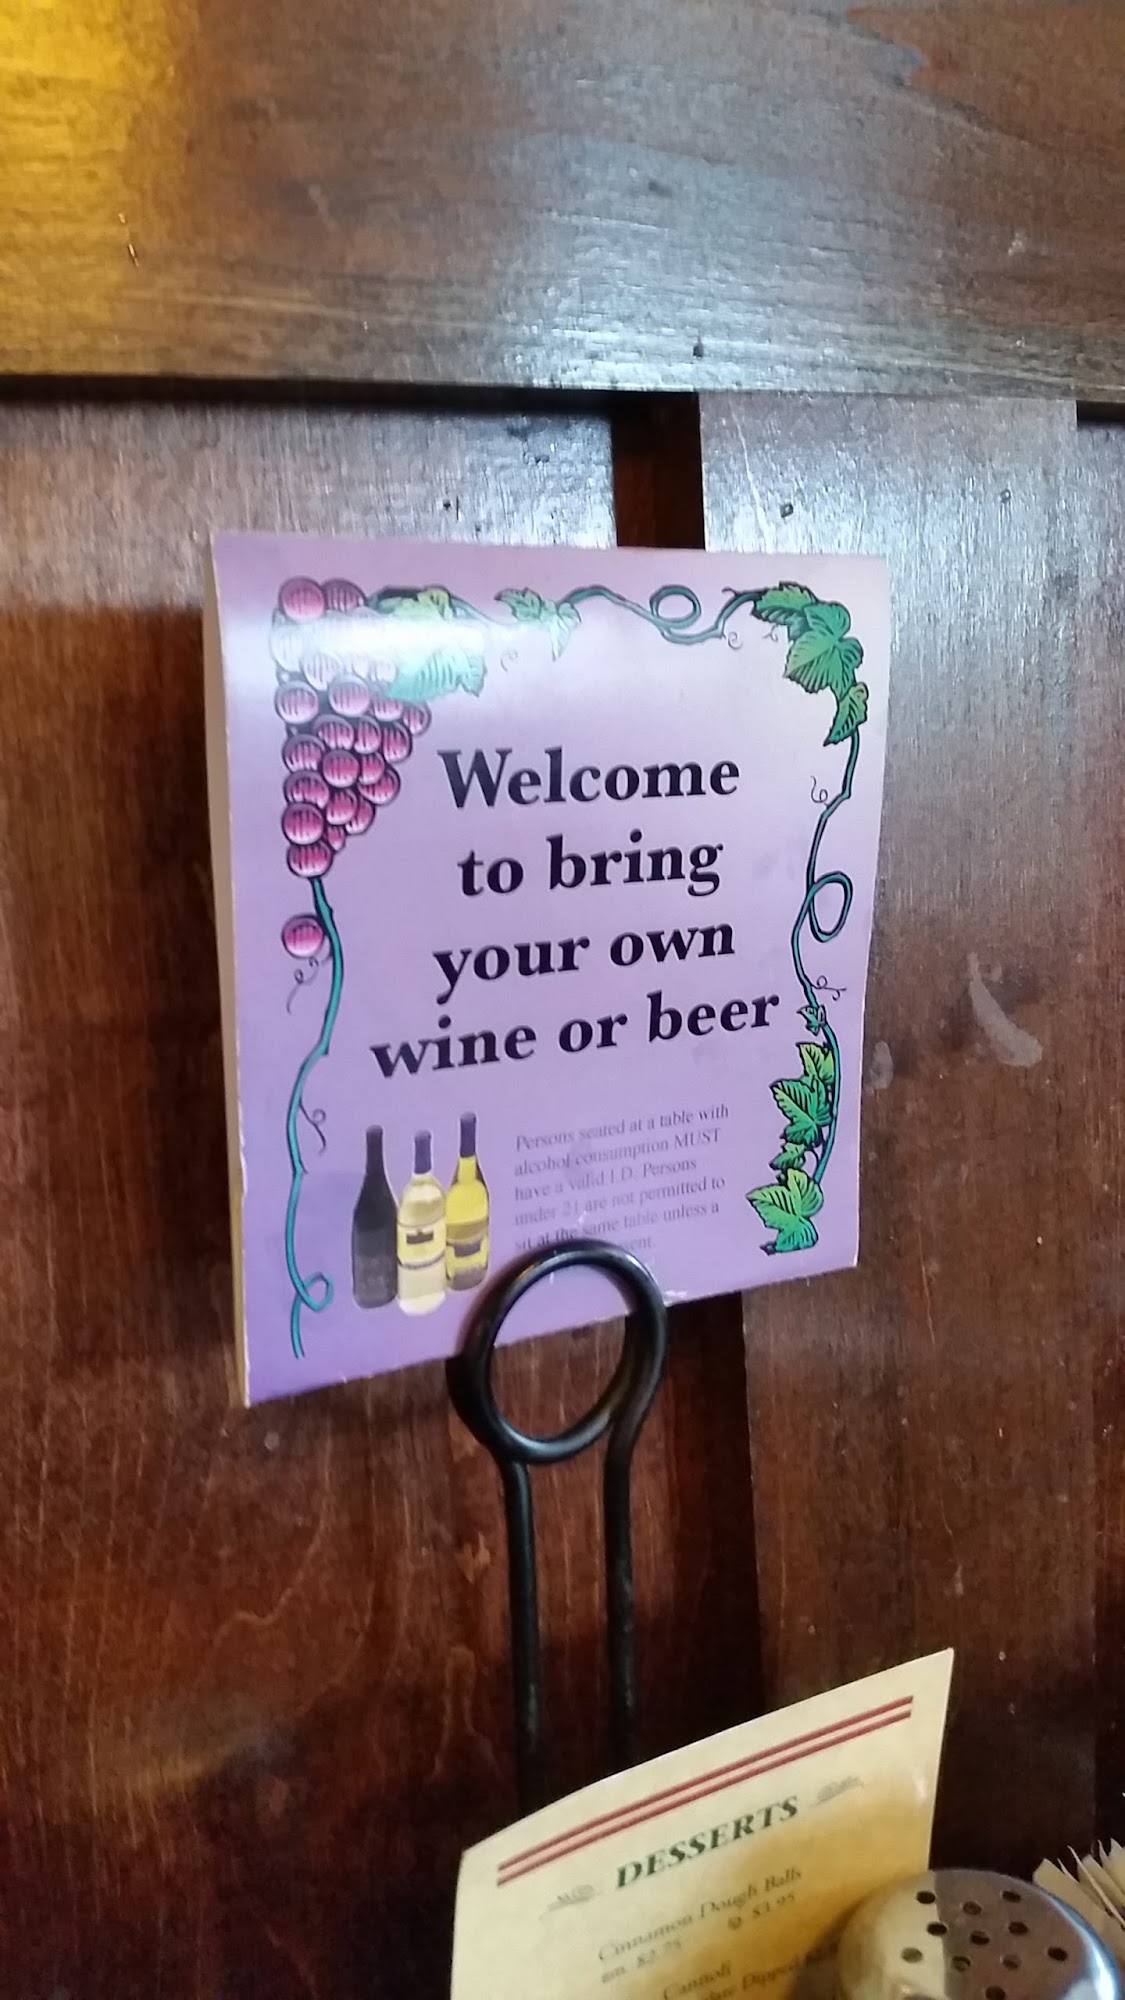 Welcome
to bring
your own
wine or beer
Persons seated at a table with
alcohol consumption MUST
have a valid I.D. Persons
under 21 are not permitted to
sit at the same table unless a
DESSERTS
Cinnamon Dough Balls
sm. $2.75 lg. $3.95
Cannoli
Dipped